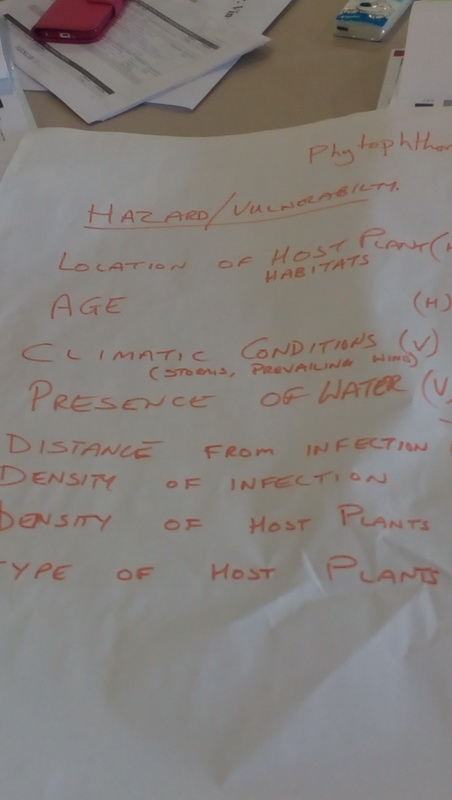 Phytophthor
HAZARD/VULNERABILTY.
LOCATION OF HOST PLANT (H
HABITATS
AGE (H)
CLIMATIC CONDITIONS (V)
(STORMS, PREVAILING WIND)
PRESENCE OF WATER (V)
DISTANCE FROM INFECTION (
DENSITY OF INFECTION
DENSITY OF HOST PLANTS
TYPE OF HOST PLANTS